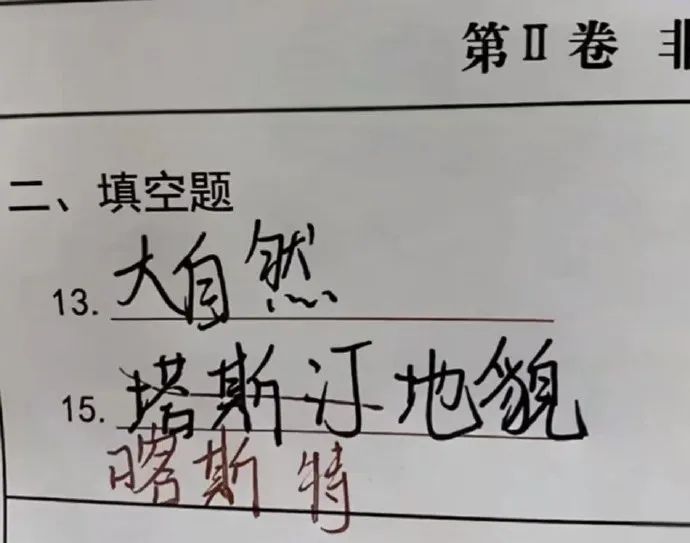 第Ⅱ卷 非
二、填空题
13. 大自然
15. 塔斯汀地貌
喀斯特